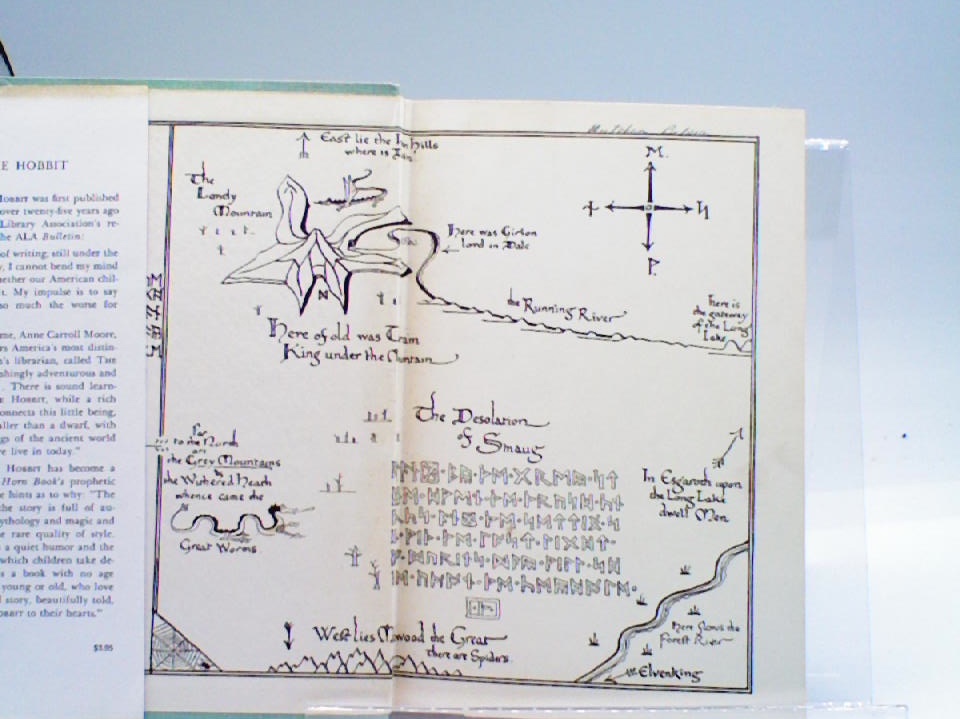 E HOBBIT
HOBBIT was first published
over twenty-five years ago
Library Association's re-
he ALA Bulletin:
of writing, still under the
, I cannot bend my mind
hether our American chil-
t. My impulse is to say
so much the worse for
me, Anne Carroll Moore,
rs America's most distin-
n's librarian, called THE
shingly adventurous and
. There is sound learn-
E HOBBIT, while a rich
connects this little being,
aller than a dwarf, with
gs of the ancient world
e live in today."
HOBBIT has become a
Horn Book's prophetic
e hints as to why: "The
the story is full of au-
ythology and magic and
e rare quality of style.
s a quiet humor and the
which children take de-
is a book with no age
young or old, who love
l story, beautifully told,
OBBIT to their hearts."
$3.95
East lie the Iron Hills
where is Dain
The
Lonely
Mountain
Here was Girion
lord in Dale
the Running River
here is
the gateway
of the Long
Lake
Here of old was Train
King under the Mountain
The Desolation
of Smaug
far
to the North
are
the Grey Mountains
&
the Withered Heath
whence came the
Great Worms
In Esgaroth upon
the Long Lake
dwell Men
West lies Mirkwood the Great
there are Spiders.
here flows the
Forest River
Elvenking